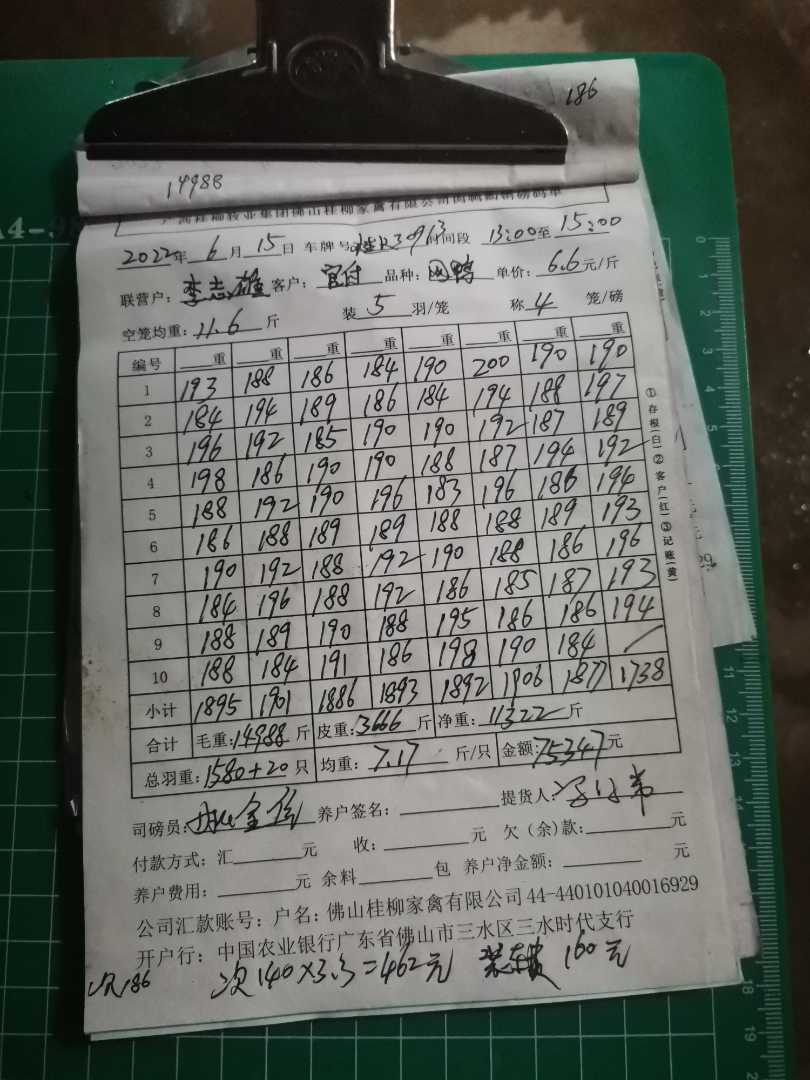 186
14988
2022年 6月 15日 车牌号 时间段 13:00至15:00
联营户: 李志雄 客户: 官付 品种: 肉鸭 单价: 6.6元/斤
空笼均重: 21.6 斤 装 5 羽/笼 称 4 笼/磅
编号 重 重 重 重 重 重 重 重
1 193 188 186 184 190 200 190 190
2 184 194 189 186 184 194 188 197
3 196 192 185 190 190 192 187 189
4 198 186 190 190 188 187 194 192
5 188 192 190 196 183 196 186 194
6 186 188 189 189 188 188 189 193
7 190 192 188 192 190 188 186 196
8 184 196 188 192 186 185 187 193
9 188 189 190 188 195 186 186 194
10 188 184 191 186 198 190 184 /
小计 1895 1901 1886 1893 1892 1906 1877 1738
合计 毛重: 14988 斤 皮重: 3666 斤 净重: 11322 斤
总羽重: 1580+20 只 均重: 7.17 斤/只 金额: 75347元
司磅员: 养户签名: 提货人:
付款方式: 汇 元 收: 元 欠(余)款: 元
养户费用: 元 余料 包 养户净金额: 元
公司汇款账号: 户名: 佛山桂柳家禽有限公司 44-440101040016929
开户行: 中国农业银行广东省佛山市三水区三水时代支行
次186 次140×3.3=462元 装车费 160元
①存根(白)②客户(红)③记账(黄)